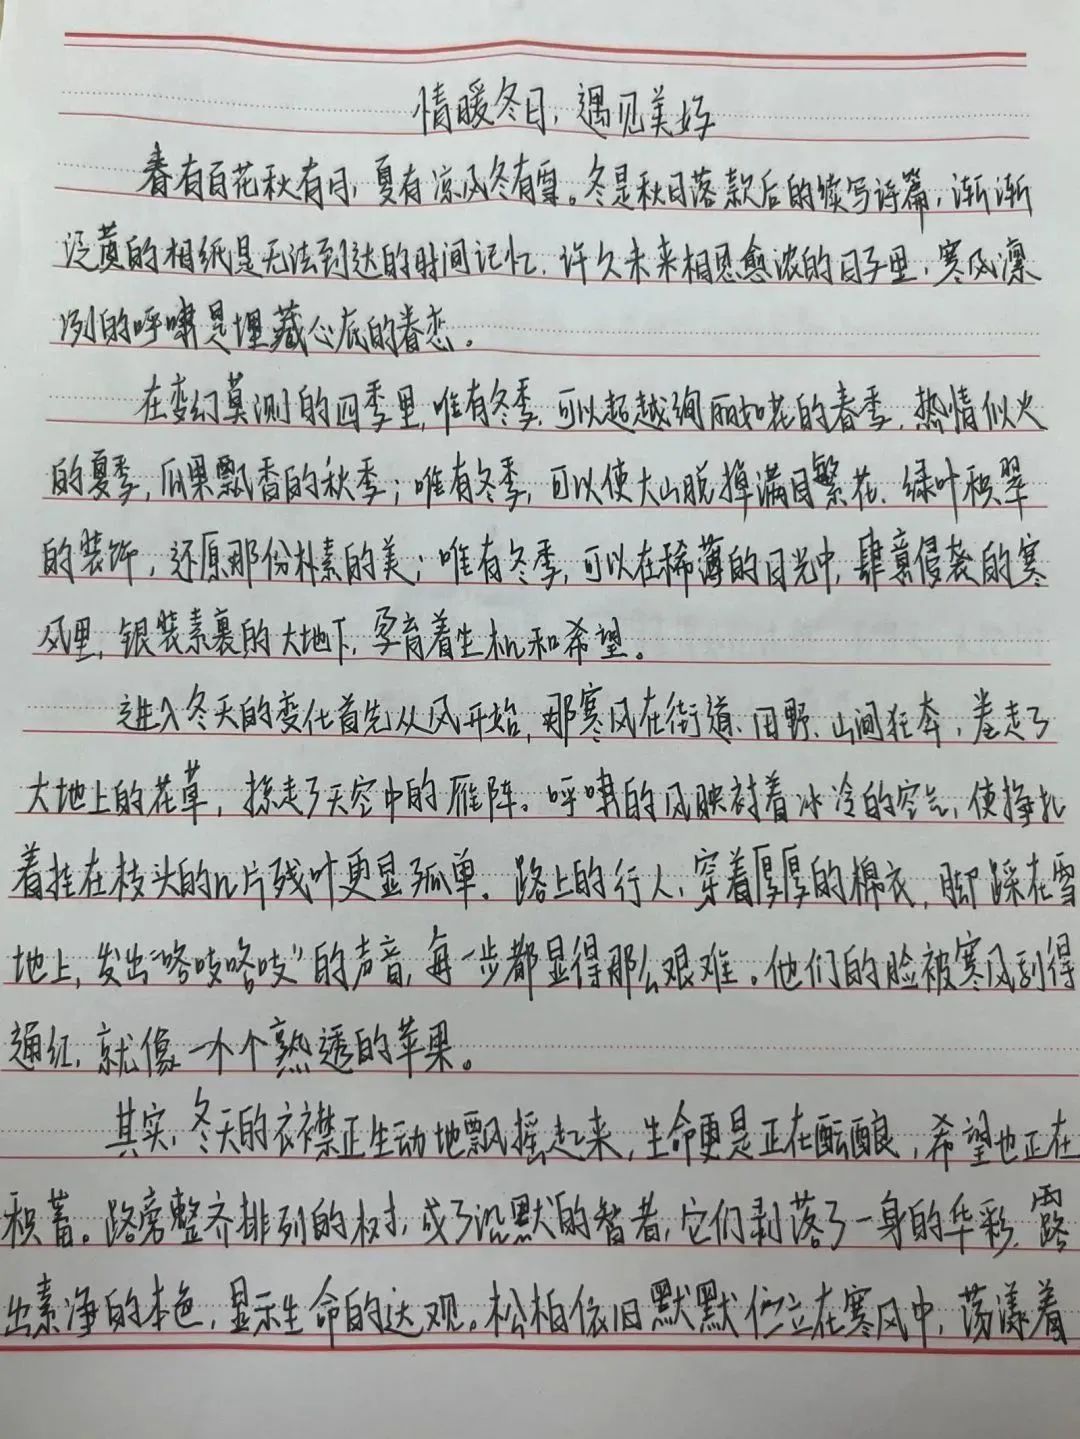 情暖冬日，遇见美好
春有百花秋有月，夏有凉风冬有雪。冬是秋日落款后的续写诗篇，渐渐
泛黄的相纸是无法到达的时间记忆，许久未来相思愈浓的日子里，寒风凛
冽的呼啸是埋藏心底的眷恋。
在变幻莫测的四季里，唯有冬季，可以超越绚丽如花的春季，热情似火
的夏季，瓜果飘香的秋季；唯有冬季，可以使大山脱掉满目繁花、绿叶积翠
的装饰，还原那份朴素的美；唯有冬季，可以在稀薄的日光中，肆意侵袭的寒
风里，银装素裹的大地下，孕育着生机和希望。
进入冬天的变化首先从风开始，那寒风在街道、田野、山间狂奔，卷走了
大地上的花草，掠走了天空中的雁阵。呼啸的风映衬着冰冷的空气，使挣扎
着挂在枝头的几片残叶更显孤单。路上的行人，穿着厚厚的棉衣，脚踩在雪
地上，发出“咯吱咯吱”的声音，每一步都显得那么艰难。他们的脸被寒风刮得
通红，就像一个个熟透的苹果。
其实，冬天的衣襟正生动地飘摇起来，生命更是正在酝酿，希望也正在
积蓄。路旁整齐排列的树，成了沉默的智者，它们剥落了一身的华彩，露
出素净的本色，显示生命的达观。松柏依旧默默伫立在寒风中，荡漾着